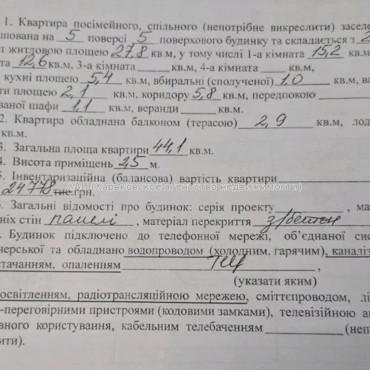 1. Квартира посімейного, спільного (непотрібне викреслити) засел
ашована на 5 поверсі 5 поверхового будинку та складається з 2
т житловою площею 27,8 кв.м, у тому числі 1-а кімната 15,2 кв.м
та 12,6 кв.м, 3-а кімната кв.м, 4-а кімната кв.м,
кухні площею 5,4 кв.м, вбиральні (сполученої) 1,0 кв.м, ва
ти площею 2,1 кв.м, коридору 5,8 кв.м, передпокою
ваної шафи 1,1 кв.м, веранди кв.м.
2. Квартира обладнана балконом (терасою) 2,9 кв.м, лод
кв.м.
3. Загальна площа квартири 44,1 кв.м.
4. Висота приміщень 2,5 м.
5. Інвентаризаційна (балансова) вартість квартири
24778 тис.грн.
Загальні відомості про будинок: серія проекту , ма
ніх стін панелі , матеріал перекриття з/бетон
Будинок підключено до телефонної мережі, об'єднаної сис
нерської та обладнано водопроводом (холодним, гарячим), каналіз
стачанням, опаленням ТЕЦ
(указати яким)
освітленням, радіотрансляційною мережею, сміттєпроводом, лі
-переговорними пристроями (кодовими замками), телевізійною а
вного користування, кабельним телебаченням (неп
ити).